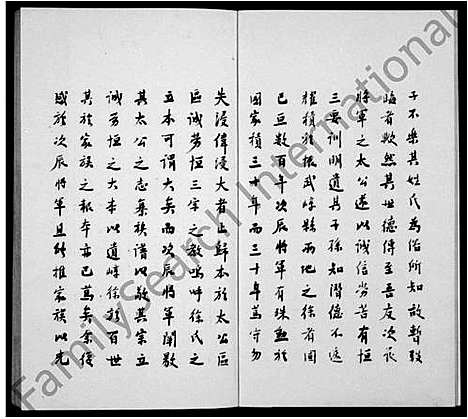 子不樂其姓氏為俗所知故暫致
臨者歟然其世德傳至吾友次辰
將軍之太公遂以誠信勞苦有恒
三要訓明道其子孫知潛德不逮
耀積於根武嶂縣兩地之徐者固
已亘數百年次辰將軍有殊勳於
國家積三十年而三十年蓋守勿
失浸偉浸大者止歸本於太公區
區誠勞恒三字之教嗚呼徐氏之
立本可謂大矣而次辰將軍闡敭
其太公之志彙族譜以統其宗立
誠勞恒之大本以道嶂徐族百世
其於家族之報本亦已篤矣余復
感於次辰將軍且能推家族以先
FamilySearch International